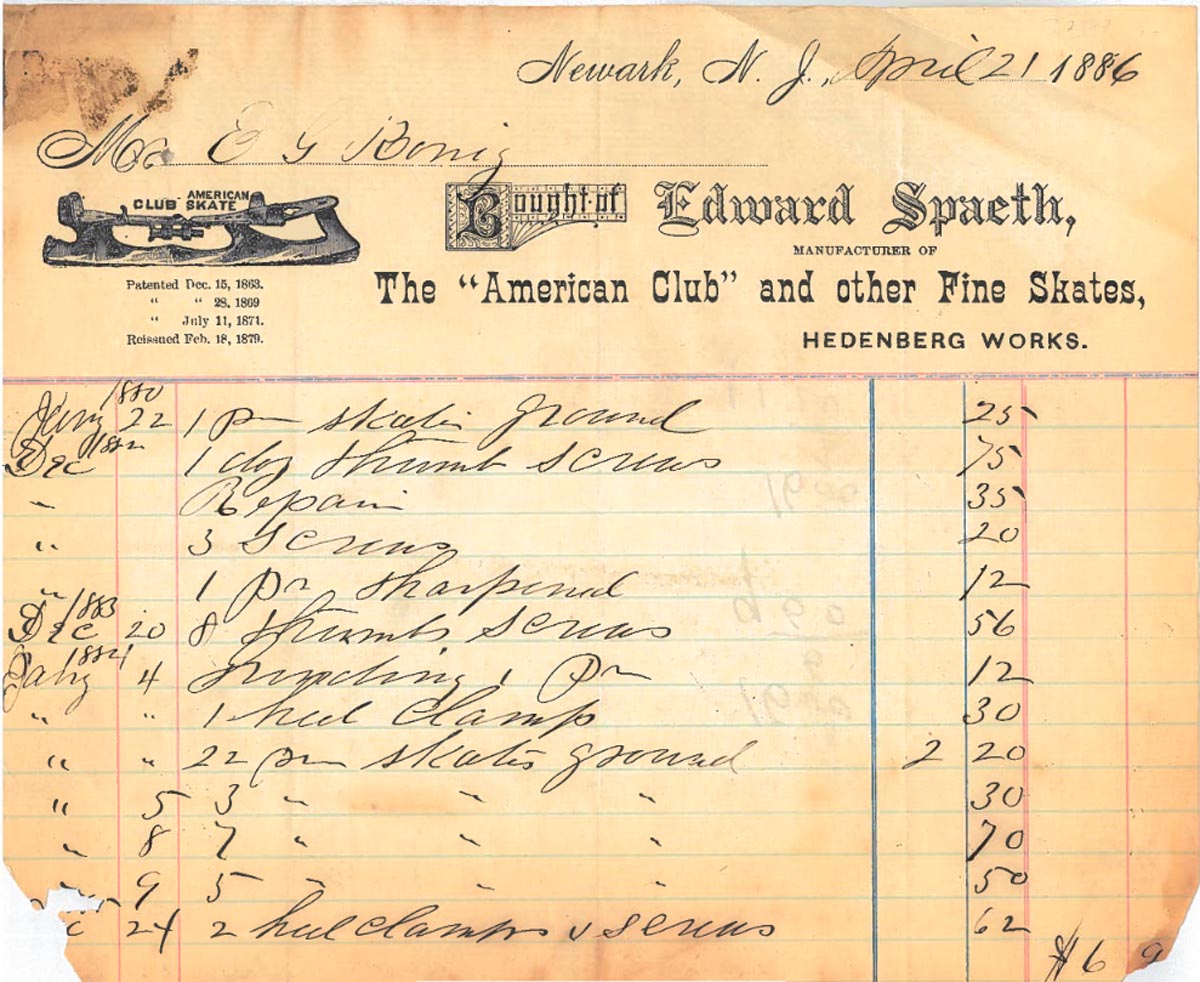 Newark, N. J., April 21 1886
Mr E G Konig
CLUB AMERICAN SKATE
Bought of Edward Spaeth,
MANUFACTURER OF
The "American Club" and other Fine Skates,
HEDENBERG WORKS.
Patented Dec. 15, 1863.
" " 28, 1869
" July 11, 1871.
Reissued Feb. 18, 1879.
1880
22 1 pr skates ground 25
Dec 1882 1 doz thumb screws 75
" Repair 35
" 3 screws 20
" 1 pr sharpened 12
1883
Dec 20 8 thumb screws 56
1884
4 1 pr 12
" " 1 heel clamp 30
" " 22 pr skates ground 2 20
" 5 3 " " " 30
" 8 7 " " " 70
" 9 5 " " " 50
24 2 heel clamps & screws 62
$6 9